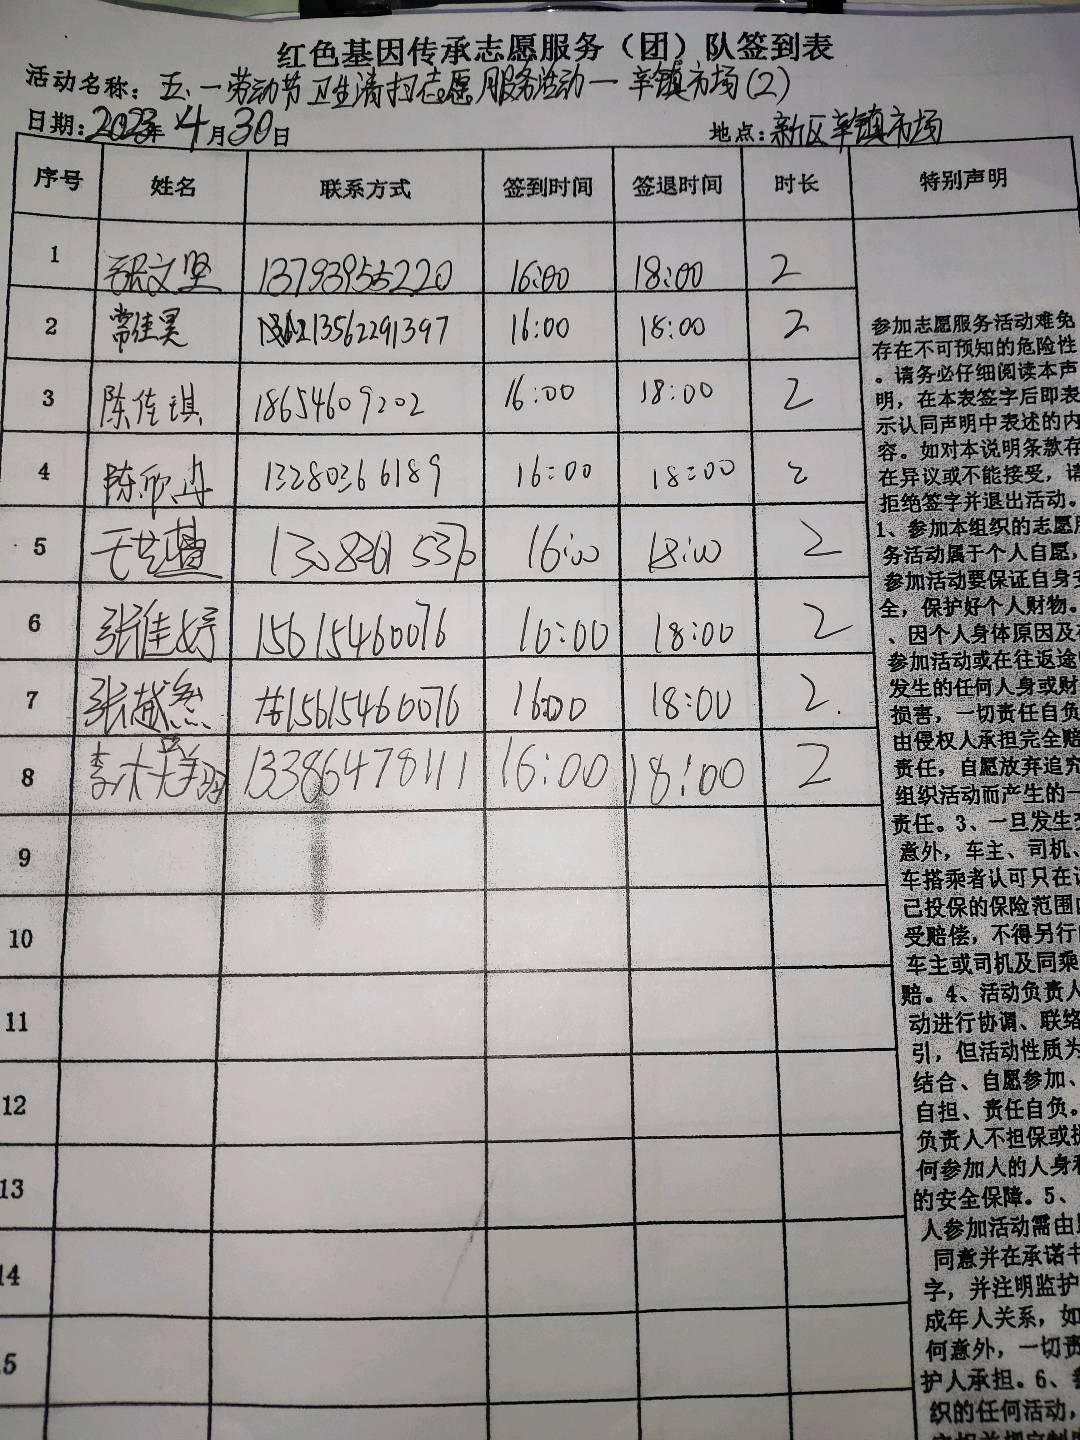 红色基因传承志愿服务（团）队签到表
活动名称：五、一劳动节卫生清扫志愿服务活动—辛镇市场(2)
日期：2023年4月30日 地点：新区辛镇市场
序号 姓名 联系方式 签到时间 签退时间 时长 特别声明
1 张文坚 13793955220 16:00 18:00 2
2 常佳昊 13562291397 16:00 18:00 2
3 陈佳琪 18654609202 16:00 18:00 2
4 陈 13280366189 16:00 18:00 2
5 16:00 18:00 2
6 张佳婷 15615460076 16:00 18:00 2
7 张越 15615460076 16:00 18:00 2
8 李 13386478111 16:00 18:00 2
9
10
11
12
13
14
15
参加志愿服务活动难免
存在不可预知的危险性
。请务必仔细阅读本声
明，在本表签字后即表
示认同声明中表述的内
容。如对本说明条款存
在异议或不能接受，请
拒绝签字并退出活动。
1、参加本组织的志愿服
务活动属于个人自愿，
参加活动要保证自身安
全，保护好个人财物。
、因个人身体原因及在
参加活动或在往返途中
发生的任何人身或财
损害，一切责任自负
由侵权人承担完全赔
责任，自愿放弃追究
组织活动而产生的一
责任。3、一旦发生
意外，车主、司机、
车搭乘者认可只在
已投保的保险范围内
受赔偿，不得另行
车主或司机及同乘
赔。4、活动负责人
动进行协调、联络
引，但活动性质为
结合、自愿参加、
自担、责任自负。
负责人不担保或
何参加人的人身和
的安全保障。5、
人参加活动需由
同意并在承诺书
字，并注明监护
成年人关系，如
何意外，一切责
护人承担。6、
织的任何活动，